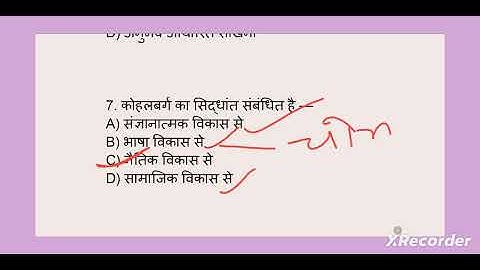 7. कोहलबर्ग का सिद्धांत संबंधित है —
A) संज्ञानात्मक विकास से
B) भाषा विकास से
C) नैतिक विकास से
D) सामाजिक विकास से
XRecorder